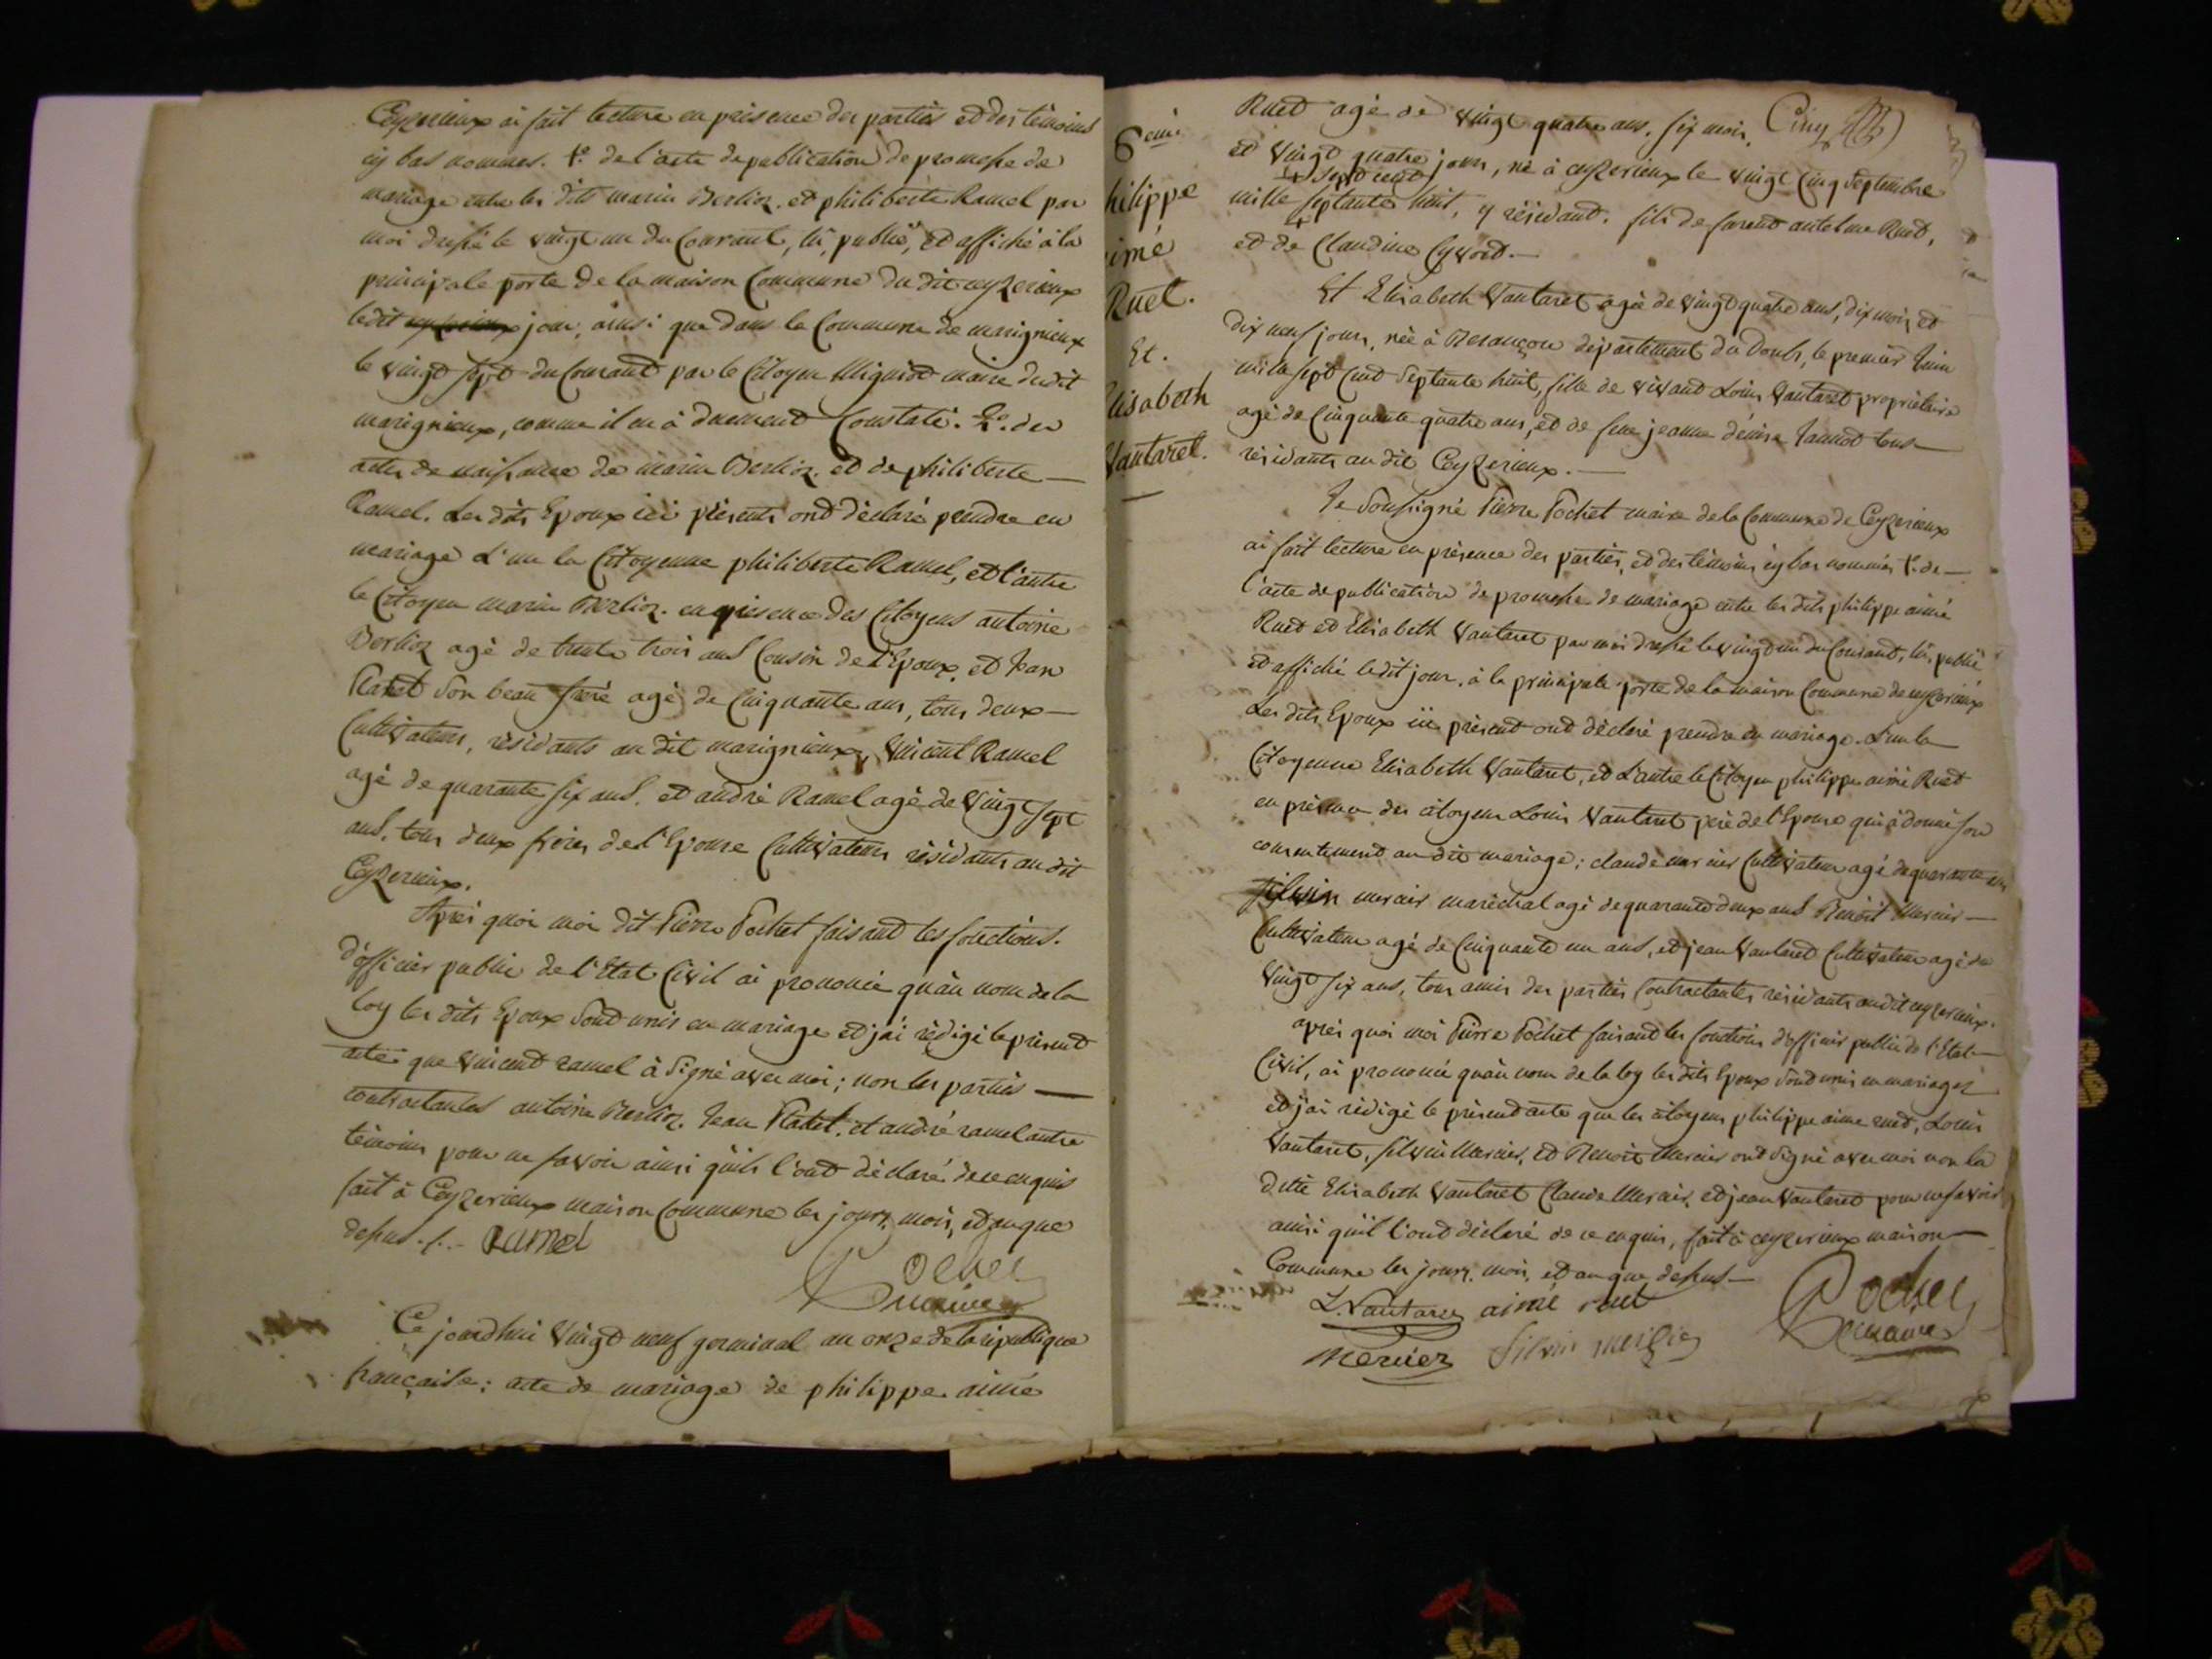 Ceyzerieux ai fait lecture en présence des parties et des témoins
cy bas nommés. 1° de l'acte de publication de promesse de
mariage entre les dits marin Berlioz. et philiberte Ramel par
moi dressé le vingt un du Courant, lû, publié, et affiché à la
principale porte de la maison Commune du dit ceyzerieux
ledit jour, ainsi que dans la Commune de marignieux
le vingt sept du Courant par le Citoyen Migniot maire dudit
marignieux, comme il en à duement Constaté. 2°. des
actes de naissance de marin Berlioz. et de philiberte
Ramel. Les dits Epoux ici présents ont déclaré prendre en
mariage L'un la Citoyenne philiberte Ramel, et l'autre
le Citoyen marin Berlioz. en présence des Citoyens antoine
Berlioz agé de trente trois ans Cousin de l'Epoux, et Jean
son beau frere agé de Cinquante ans, tous deux
Cultivateurs, résidants au dit marignieux, Vincent Ramel
agé de quarante six ans. et andré Ramel agé de Vingt sept
ans, tous deux freres de l'Epouse Cultivateurs résidants au dit
Ceyzerieux.
Après quoi moi dit Pierre Pochet faisant les fonctions
d'officier public de l'Etat Civil ai prononcé qu'au nom de la
loy les dits Epoux sont unis en mariage et j'ai rédigé le présent
acte que Vincent ramel à signé avec moi; non les parties
contractantes antoine Berlioz. Jean et andré ramel autre
témoins pour ne savoir ainsi qu'ils l'ont déclaré de ce enquis
fait à Ceyzerieux maison Commune les jours, mois, et an que
dessus ./.. Ramel
Pochet
maire
Ce jourdhui Vingt neuf germinal an onze de la république
française: acte de mariage de philippe aimé
6eme
hilippe
imé
Ruet.
Et.
lisabeth
Vautaret.
Ruet agé de vingt quatre ans, six mois, Cinq
et vingt quatre jours, né à ceyzerieux le vingt Cinq Septembre
sept cent
mille septante huit, y résidant. fils de furent antelme Ruet,
et de Claudine Cyvoct.
Et Elisabeth Vautaret agée de Vingt quatre ans, dix mois, et
dix neuf jours, née à Besançon département du Doubs, le premier Juin
mille sept cent septante huit, fille de vivant Louis Vautaret propriétaire
agé de Cinquante quatre ans, et de feue jeanne denise Jannot tous
résidants au dit Ceyzerieux.
Je soussigné Pierre Pochet maire de la Commune de Ceyzerieux
ai fait lecture en présence des parties, et des témoins cy bas nommés 1°. de
l'acte de publication de promesse de mariage entre les dits philippe aimé
Ruet et Elisabeth Vautaret par moi dressé le vingt un du Courant, lû, publié
et affiché ledit jour, à la principale porte de la maison Commune de ceyzerieux
Les dits Epoux ici présent ont déclaré prendre en mariage. L'un la
Citoyenne Elisabeth Vautaret, et L'autre le Citoyen philippe aimé Ruet
en présence des citoyens Louis Vautaret pere de l'Epouse qui à donné son
consentement au dit mariage; claude mercier Cultivateur agé de quarante ans
silvin mercier maréchal agé de quarante deux ans Benoit Mercier
Cultivateur agé de Cinquante un ans, et jean Vautaret Cultivateur agé de
Vingt six ans, tous amis des parties Contractantes résidants audit ceyzerieux.
après quoi moi Pierre Pochet faisant les fonctions d'officier public de l'Etat
Civil, ai prononcé qu'au nom de la loy les dits Epoux sont unis en mariage
et j'ai rédigé le présent acte que les citoyens philippe aimé ruet, Louis
Vautaret, silvin Mercier, et Benoit Mercier ont signé avec moi non la
ditte Elisabeth Vautaret Claude Mercier, et jean Vautaret pour ne savoir
ainsi qu'il l'ont déclaré de ce enquis, fait à ceyzerieux maison
Commune les jours, mois, et an que dessus
L. Vautaret aimé ruet
Pochet
maire
Mercier Silvin mercier